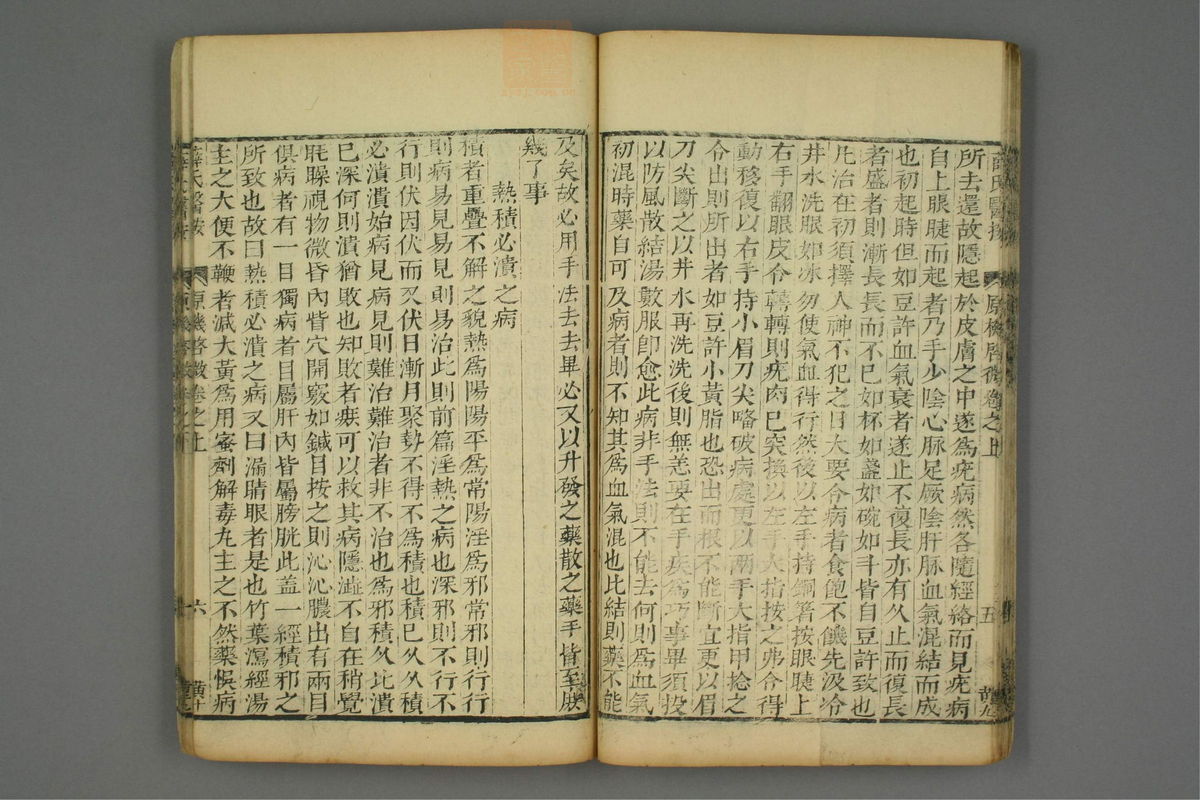 薛氏醫按
原機啓微卷之上
五
所去還故隱起於皮膚之中遂爲疣病然各隨經絡而見疣病
自上眼睫而起者乃手少陰心脉足厥陰肝脉血氣混結而成
也初起時但如豆許血氣衰者遂止不復長亦有久止而復長
者盛者則漸長長而不已如杯如盞如碗如斗皆自豆許致也
凡治在初須擇人神不犯之日大要令病者食飽不饑先汲冷
井水洗眼如冰勿使氣血得行然後以左手持銅筯按眼睫上
右手翻眼皮令轉轉則疣肉已突換以左手大指按之弗令得
動移復以右手持小眉刀尖略破病處更以兩手大指甲捻之
令出則所出者如豆許小黃脂也恐出而根不能斷宜更以眉
刀尖斷之以井水再洗洗後則無恙要在手疾爲巧事畢須投
以防風散結湯數服卽愈此病非手法則不能去何則爲血氣
初混時藥自可及病者則不知其爲血氣混也比結則藥不能
及矣故必用手法去去畢必又以升發之藥散之藥手皆至庶
幾了事
熱積必潰之病
積者重疊不解之貌熱爲陽陽平爲常陽淫爲邪常邪則行行
則病易見易見則易治此則前篇淫熱之病也深邪則不行不
行則伏因伏而又伏日漸月聚勢不得不爲積也積已久久積
必潰潰始病見病見則難治難治者非不治也爲邪積久比潰
已深何則潰猶敗也知敗者疾可以救其病隱澁不自在稍覺
眊矂視物微昏內眥穴開竅如鍼目按之則沁沁膿出有兩目
俱病者有一目獨病者目屬肝內眥屬膀胱此蓋一經積邪之
所致也故曰熱積必潰之病又曰漏睛眼者是也竹葉瀉經湯
主之大便不鞕者減大黃爲用蜜劑解毒丸主之不然藥悞病
薛氏醫按
原機啓微卷之上
六